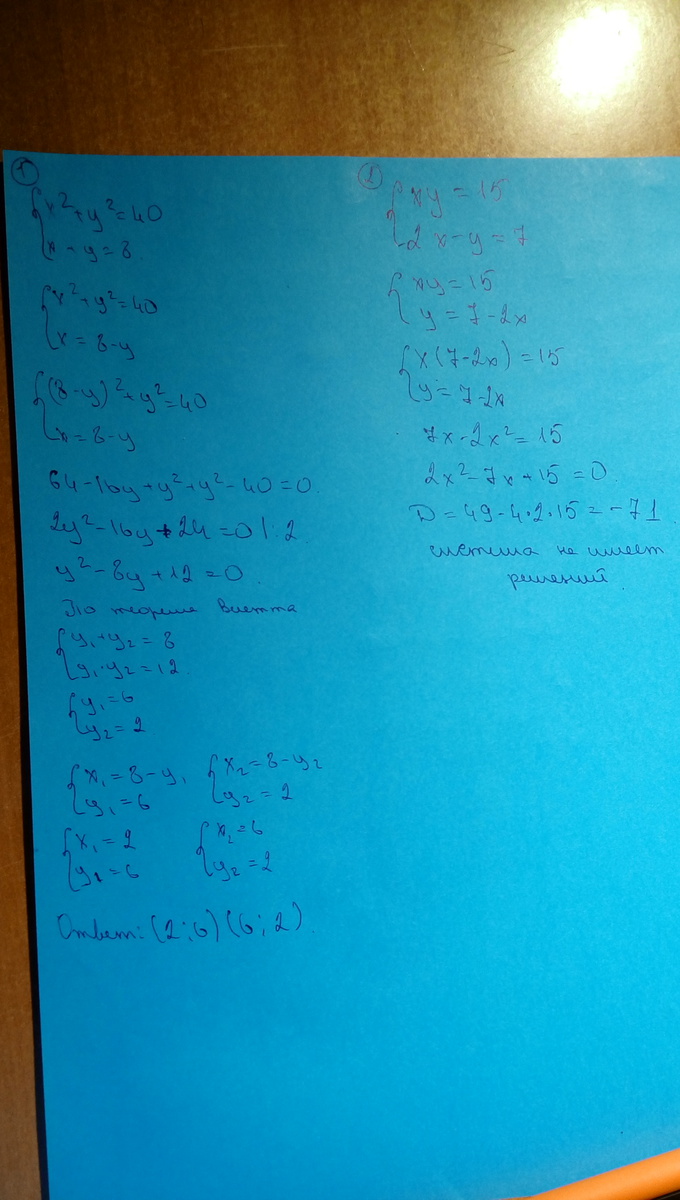 1
{x² + y² = 40
x + y = 8.
{x² + y² = 40
x = 8 - y
{(8 - y)² + y² = 40
x = 8 - y
64 - 16y + y² + y² - 40 = 0.
2y² - 16y + 24 = 0 |:2.
y² - 8y + 12 = 0.
По теореме Виетта
{y₁ + y₂ = 8
y₁ · y₂ = 12.
{y₁ = 6
y₂ = 2
{x₁ = 8 - y₁ {x₂ = 8 - y₂
y₁ = 6 y₂ = 2
{x₁ = 2 {x₂ = 6
y₁ = 6 y₂ = 2
Ответ: (2; 6) (6; 2).
2
{xy = 15
2x - y = 7
{xy = 15
y = 7 - 2x
{x(7 - 2x) = 15
y = 7 - 2x
7x - 2x² = 15
2x² - 7x + 15 = 0.
D = 49 - 4·2·15 = -71.
система не имеет
решений.